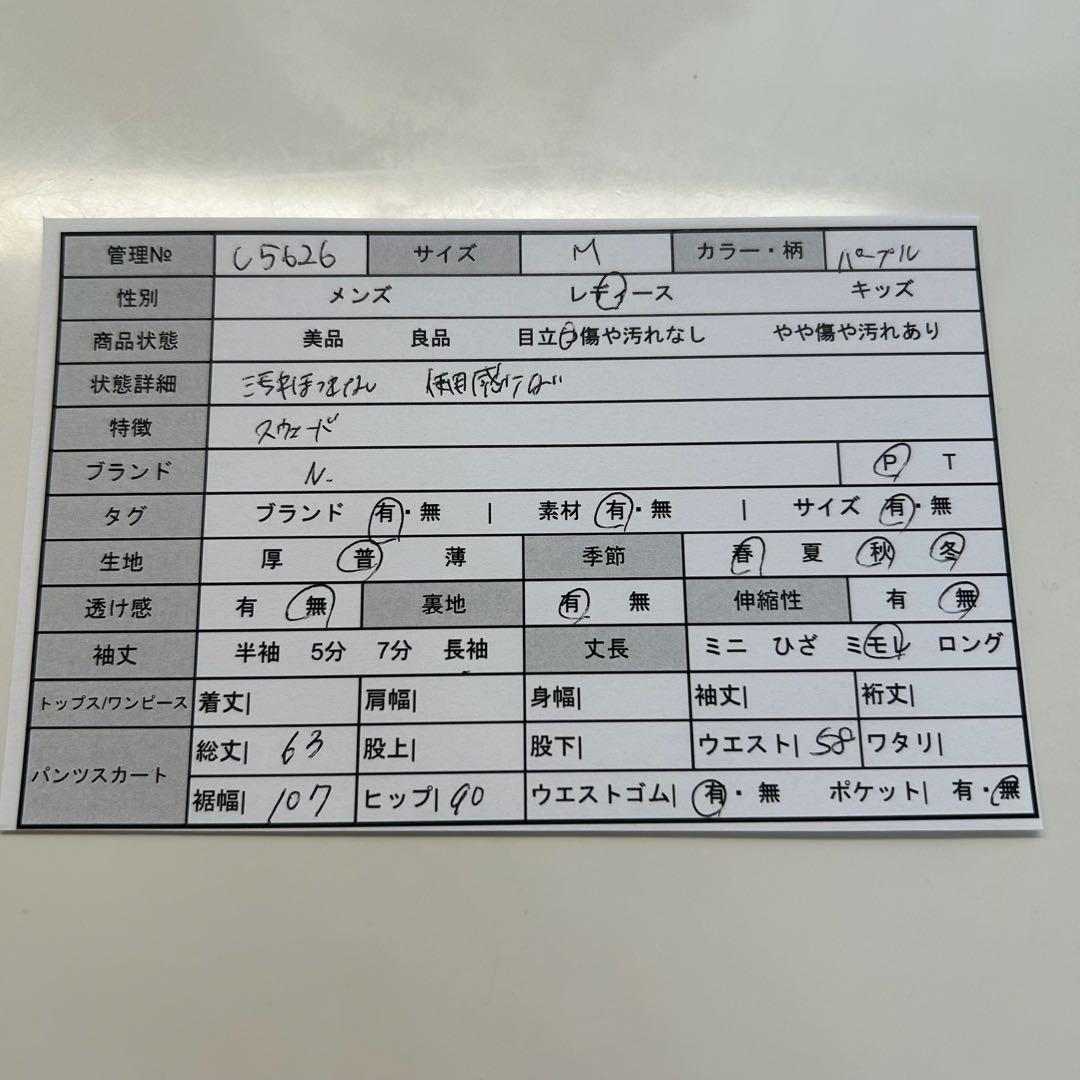 管理№ C5626 サイズ M カラー・柄 パープル
性別 メンズ レディース キッズ
商品状態 美品 良品 目立つ傷や汚れなし やや傷や汚れあり
状態詳細 使用感
特徴 スウェード
ブランド N. P T
タグ ブランド 有・無 | 素材 有・無 | サイズ 有・無
生地 厚 普 薄 季節 春 夏 秋 冬
透け感 有 無 裏地 有 無 伸縮性 有 無
袖丈 半袖 5分 7分 長袖 丈長 ミニ ひざ ミモレ ロング
トップス/ワンピース 着丈| 肩幅| 身幅| 袖丈| 裄丈|
パンツスカート 総丈| 63 股上| 股下| ウエスト| 58 ワタリ|
裾幅| 107 ヒップ| 90 ウエストゴム| 有・無 ポケット| 有・無